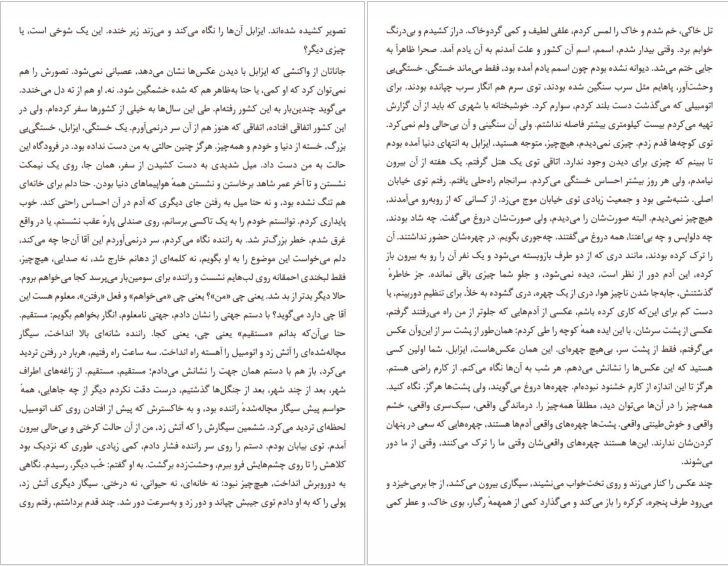 تصویر کشیده شده‌اند. ایزابل آن‌ها را نگاه می‌کند و می‌زند زیر خنده. این یک شوخی است، یا
چیزی دیگر؟
جاناتان از واکنشی که ایزابل با دیدن عکس‌ها نشان می‌دهد، عصبانی نمی‌شود. تصورش را هم
نمی‌توان کرد که او کمی، یا حتا به‌ظاهر هم که شده خشمگین شود. نه، او هم از ته دل می‌خندد.
می‌گوید چندین‌بار به این کشور رفته‌ام. طی این سال‌ها به خیلی از کشورها سفر کرده‌ام. ولی در
این کشور اتفاقی افتاده، اتفاقی که هنوز هم از آن سر درنمی‌آورم. یک خستگی، ایزابل، خستگی‌یی
بزرگ، خسته از دنیا و خودم و همه‌چیز. هرگز چنین حالتی به من دست نداده بود. در فرودگاه این
حالت به من دست داد. میل شدیدی به دست کشیدن از سفر، همان جا، روی یک نیمکت
نشستن و تا آخر عمر شاهد برخاستن و نشستن همهٔ هواپیماهای دنیا بودن. حتا دلم برای خانه‌ای
هم تنگ نشده بود، و نه حتا میل به رفتن جای دیگری که آدم در آن احساس راحتی کند. خوب
پایداری کردم. توانستم خودم را به یک تاکسی برسانم. روی صندلی پارهٔ عقب نشستم، یا در واقع
غرق شدم. خطر بزرگ‌تر شد. به راننده نگاه می‌کردم، سر درنمی‌آوردم این آقا آن‌جا چه می‌کند،
دلم می‌خواست این موضوع را به او بگویم، نه کلمه‌ای از دهانم خارج شد، نه صدایی، هیچ‌چیز،
فقط لبخندی احمقانه روی لب‌هایم نشست و راننده برای سومین‌بار می‌پرسد کجا می‌خواهم بروم.
حالا دیگر بدتر از بد شد. یعنی چی «من»؟ یعنی چی «می‌خواهم» و فعل «رفتن»، معلوم هست این
آقا چی دارد می‌گوید؟ با دستم جهتی را نشان دادم، جهتی نامعلوم، انگار بخواهم بگویم: مستقیم.
حتا بی‌آن‌که بدانم «مستقیم» یعنی چی، یعنی کجا. راننده شانه‌ای بالا انداخت، سیگار
مچاله‌شده‌ای را آتش زد و اتومبیل را آهسته راه انداخت. سه ساعت راه رفتیم، هربار در رفتن تردید
می‌کرد، باز هم با دستم همان جهت را نشانش می‌دادم: مستقیم، مستقیم. از زاغه‌های اطراف
شهر، بعد از چند شهر، بعد از جنگل‌ها گذشتیم، درست دقت نکردم دیگر از چه جاهایی، همهٔ
حواسم پیش سیگار مچاله‌شدهٔ راننده بود، و به خاکسترش که پیش از افتادن روی کف اتومبیل،
لحظه‌ای تردید می‌کرد. ششمین سیگارش را که آتش زد، من از آن حالت کرختی و بی‌حالی بیرون
آمدم. توی بیابان بودم. دستم را روی سر راننده فشار دادم، کمی زیادی، طوری که نزدیک بود
کلاهش را تا روی چشم‌هایش فرو ببرم، وحشت‌زده برگشت. به او گفتم: خُب دیگر، رسیدم. نگاهی
به دوروبرش انداخت، هیچ‌چیز نبود: نه خانه‌ای، نه حیوانی، نه درختی. سیگار دیگری آتش زد،
پولی را که به او دادم توی جیبش چپاند و دور زد و به‌سرعت دور شد. چند قدم برداشتم، رفتم روی
تل خاکی، خم شدم و خاک را لمس کردم، علفی لطیف و کمی گردوخاک. دراز کشیدم و بی‌درنگ
خوابم برد. وقتی بیدار شدم، اسمم، اسم آن کشور و علت آمدنم به آن یادم آمد. صحرا ظاهراً به
جایی ختم می‌شد. دیوانه نشده بودم چون اسمم یادم آمده بود، فقط می‌ماند خستگی. خستگی‌یی
وحشت‌آور، پاهایم مثل سرب سنگین شده بودند، توی سرم هم انگار سرب چپانده بودند. برای
اتومبیلی که می‌گذشت دست بلند کردم، سوارم کرد. خوشبختانه با شهری که باید از آن گزارش
تهیه می‌کردم بیست کیلومتری بیشتر فاصله نداشتم. ولی آن سنگینی و آن بی‌حالی ولم نمی‌کرد.
توی کوچه‌ها قدم زدم. چیزی نمی‌دیدم، هیچ‌چیز، متوجه هستید، ایزابل، به انتهای دنیا آمده بودم
تا ببینم که چیزی برای دیدن وجود ندارد. اتاقی توی یک هتل گرفتم. یک هفته از آن بیرون
نیامدم، ولی هر روز بیشتر احساس خستگی می‌کردم. سرانجام راه‌حلی یافتم. رفتم توی خیابان
اصلی. شنبه‌شبی بود و جمعیت زیادی توی خیابان موج می‌زد. از کسانی که از روبه‌رو می‌آمدند،
هیچ‌چیز نمی‌دیدم. البته صورت‌شان را می‌دیدم، ولی صورت‌شان دروغ می‌گفت. چه شاد بودند،
چه دلواپس و چه بی‌اعتنا، همه دروغ می‌گفتند. چه‌جوری بگویم. در چهره‌شان حضور نداشتند. آن
را ترک کرده بودند، مانند دری که از دو طرف بازوبسته می‌شود و یک نفر آن را رو به بیرون باز
کرده، این آدم دور از نظر است، دیده نمی‌شود، و جلوِ ما شما چیزی باقی نمانده. جز خاطرهٔ
گذشتنش، جابه‌جا شدن ناچیز هوا، دری از یک چهره، دری گشوده به خلأ. برای تنظیم دوربینم، یا
دست کم برای این‌که کاری کرده باشم، عکسی از آدم‌هایی که جلوتر از من راه می‌رفتند گرفتم،
عکسی از پشت سرشان. با این ایده همهٔ کوچه را طی کردم: همان‌طور از پشت سر از این‌وآن عکس
می‌گرفتم، فقط از پشت سر، بی‌هیچ چهره‌ای. این همان عکس‌هاست، ایزابل. شما اولین کسی
هستید که این عکس‌ها را نشانش می‌دهم. هر شب به آن‌ها نگاه می‌کنم. از کارم راضی هستم.
هرگز تا این اندازه از کارم خشنود نبوده‌ام. چهره‌ها دروغ می‌گویند، ولی پشت‌ها هرگز. نگاه کنید.
همه‌چیز را در آن‌ها می‌توان دید، مطلقاً همه‌چیز را. درماندگی واقعی، سبک‌سری واقعی، خشم
واقعی و خوش‌طینتی واقعی. پشت‌ها چهره‌های واقعی آدم‌ها هستند، چهره‌هایی که سعی در پنهان
کردن‌شان ندارند. این‌ها هستند چهره‌های واقعی‌شان وقتی ما را ترک می‌کنند، وقتی از ما دور
می‌شوند.
چند عکس را کنار می‌زند و روی تخت‌خواب می‌نشیند، سیگاری بیرون می‌کشد، از جا برمی‌خیزد و
می‌رود طرف پنجره، کرکره را باز می‌کند و می‌گذارد کمی از همهمهٔ رگبار، بوی خاک، و عطر کمی